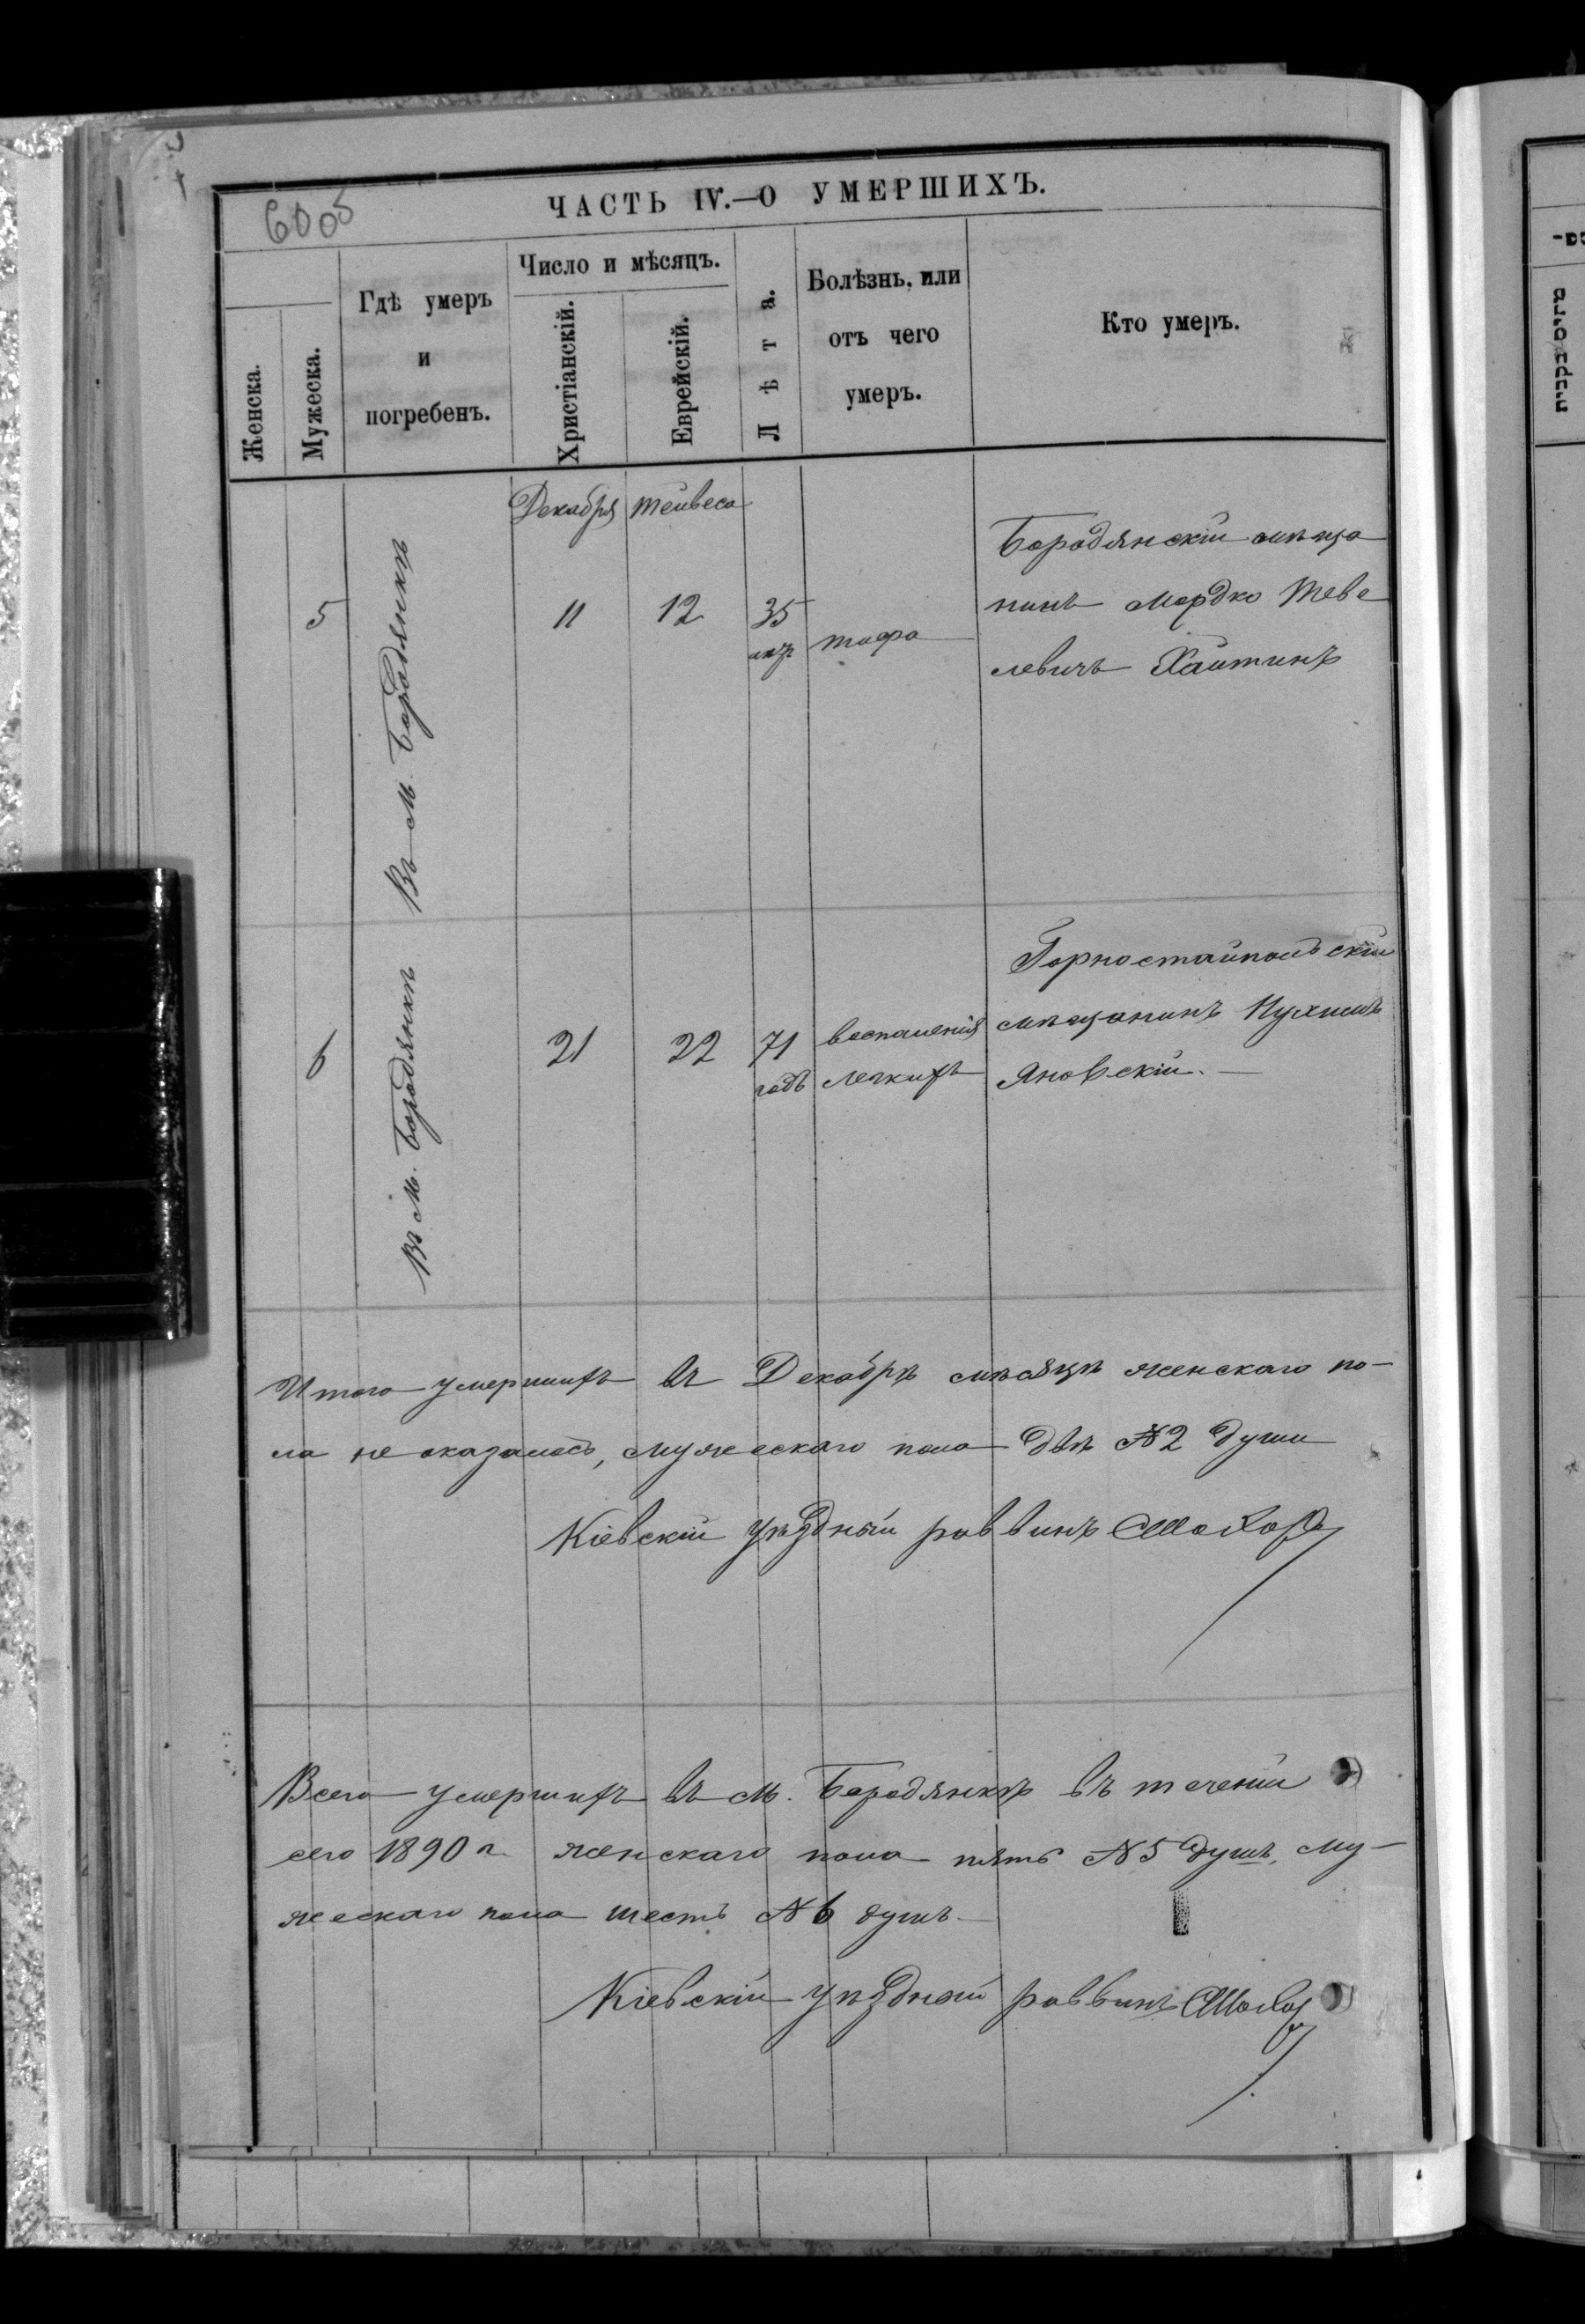 6005
ЧАСТЬ IV.—О УМЕРШИХЪ.
Женска.
Мужеска.
Гдѣ умеръ
и
погребенъ.
Число и мѣсяцъ.
Христіанскій.
Еврейскій.
Лѣта.
Болѣзнь, или
отъ чего
умеръ.
Кто умеръ.
Декабря Тейвеса
5
Въ м. Бородянкѣ
11
12
35
лѣт
тифа
Бородянскій мѣща
нинъ Мордко Теве
левичъ Хаитинъ
6
Въ м. Бородянкѣ
21
22
71
годъ
воспаленія
легкихъ
Горностайпольскій
мѣщанинъ Нухимъ
Яновскій.
Итого умершихъ въ Декабрѣ мѣсяцѣ женскаго по-
ла не оказалось, мужескаго пола двѣ №2 души
Кіевскій уѣздный раввинъ
Всего умершихъ въ м. Бородянкѣ въ теченіи
сего 1890 г. женскаго пола пять №5 душъ, му-
жескаго пола шесть №6 душъ
Кіевскій уѣздный раввинъ